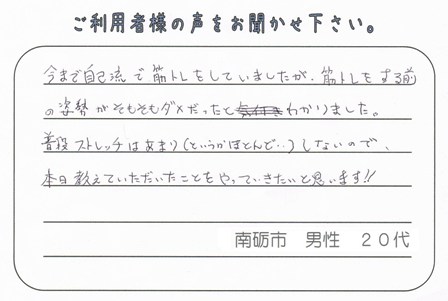 ご利用者様の声をお聞かせ下さい。
今まで自己流で筋トレをしていましたが、筋トレをする前
の姿勢がそもそもダメだったとわかりました。
普段ストレッチはあまり(というかほとんど…)しないので、
本日教えていただいたことをやっていきたいと思います!!
南砺市 男性 20代